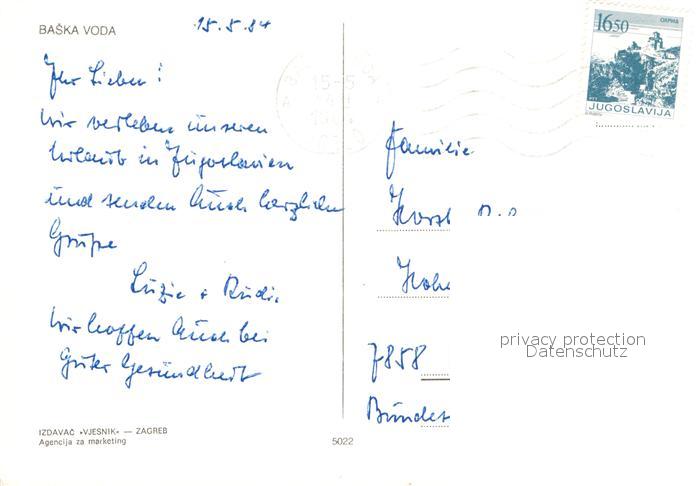 BAŠKA VODA
15.5.84
Ihr Lieben!
Wir verleben unseren
Urlaub in Jugoslavien
und senden Euch herzliche
Grüße
Luzie + Rudi.
Wir hoffen Euch bei
guter Gesundheit
IZDAVAČ »VJESNIK« — ZAGREB
Agencija za marketing
5022
16.50
JUGOSLAVIJA
Familie
Horst
Hohe
7858
Bundes
privacy protection
Datenschutz